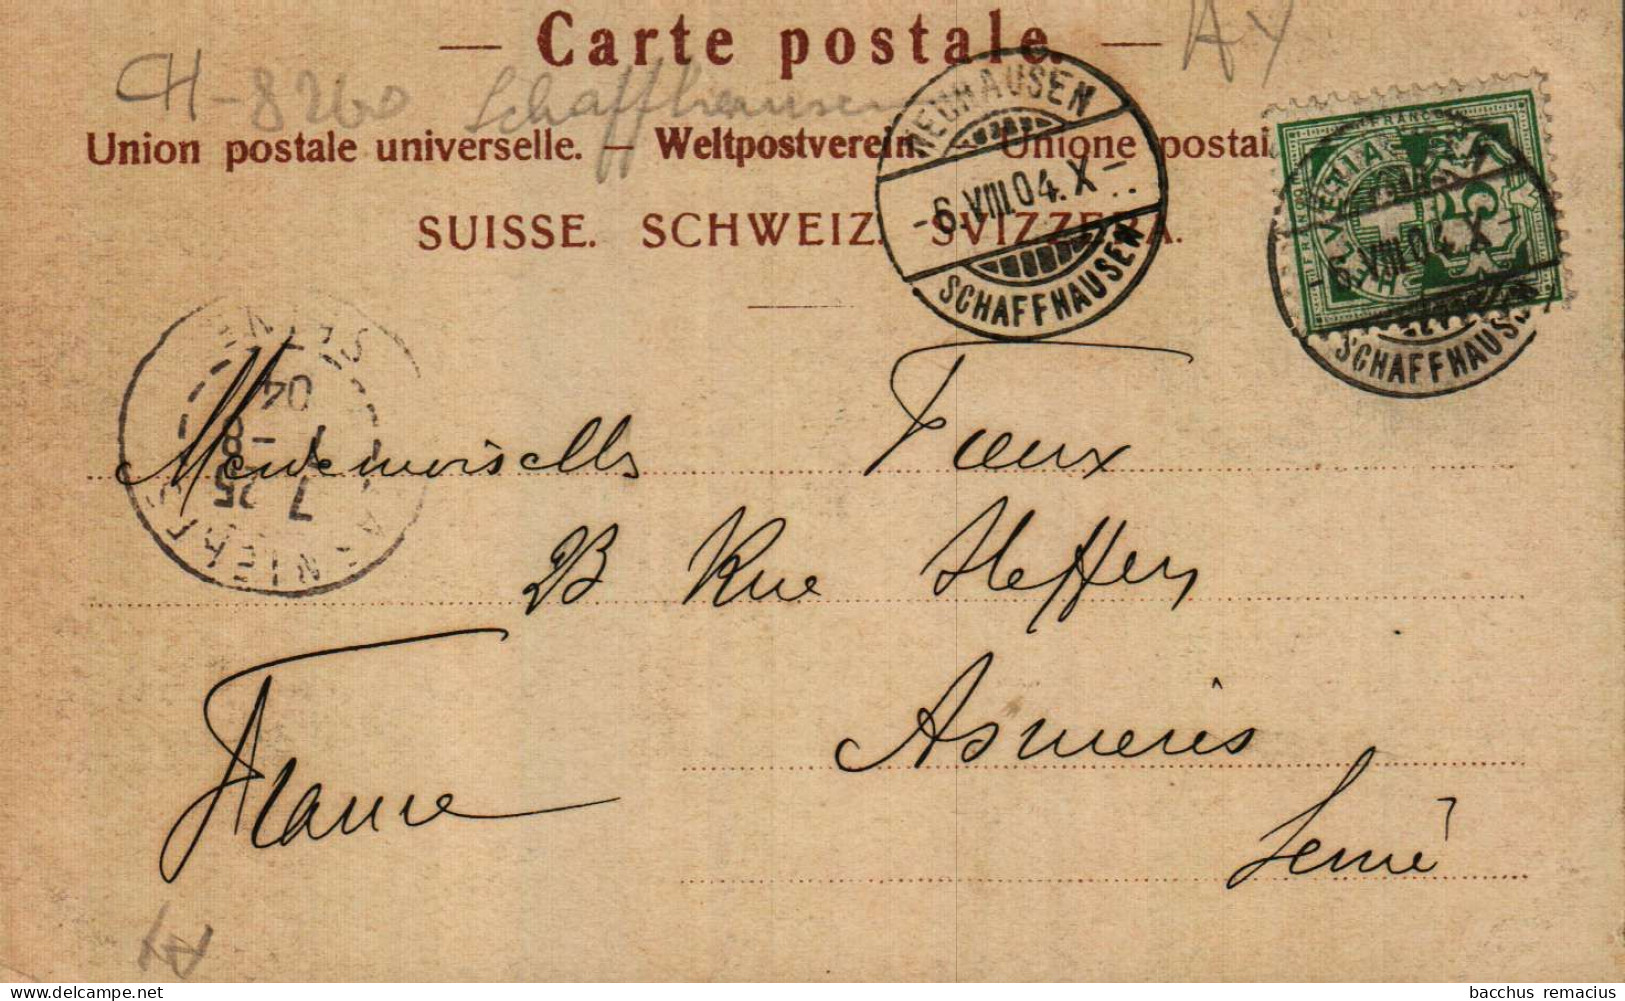 — Carte postale. —
AY
CH-8260 Schaffhausen
Union postale universelle. — Weltpostverein. — Unione postal
SUISSE. SCHWEIZ. SVIZZERA.
NEUHAUSEN
-6.VIII.04.X-
SCHAFFHAUSEN
FRANCO
HELVETIA
5
6.VIII.04.X-
SCHAFFHAUSEN
SEINE
04
7 -8
7 25
ASNIERES
Mademoiselle
23 Rue Steffen
Asnieres
France
Seine
bacchus remacius